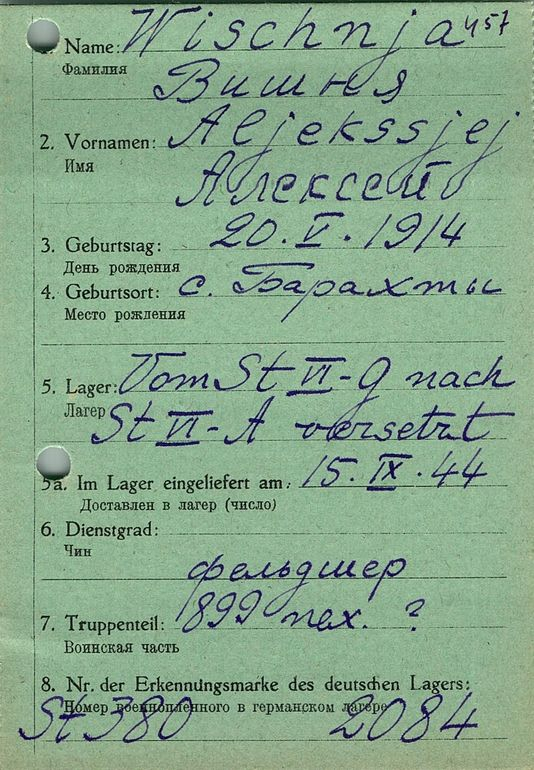 1. Name: Wischnja 457
Фамилия
Вишня
2. Vornamen: Aljekssjej
Имя
Алексей
3. Geburtstag: 20. V. 1914
День рождения
4. Geburtsort: с. Барахты
Место рождения
5. Lager: Vom St VI-G nach
Лагер St VI-A versetzt
5a. Im Lager eingeliefert am: 15. IX. 44
Доставлен в лагер (число)
6. Dienstgrad:
Чин
фельдшер
7. Truppenteil: 899 пех. ?
Воинская часть
8. Nr. der Erkennungsmarke des deutschen Lagers:
Номер военнопленного в германском лагере
St 380 2084